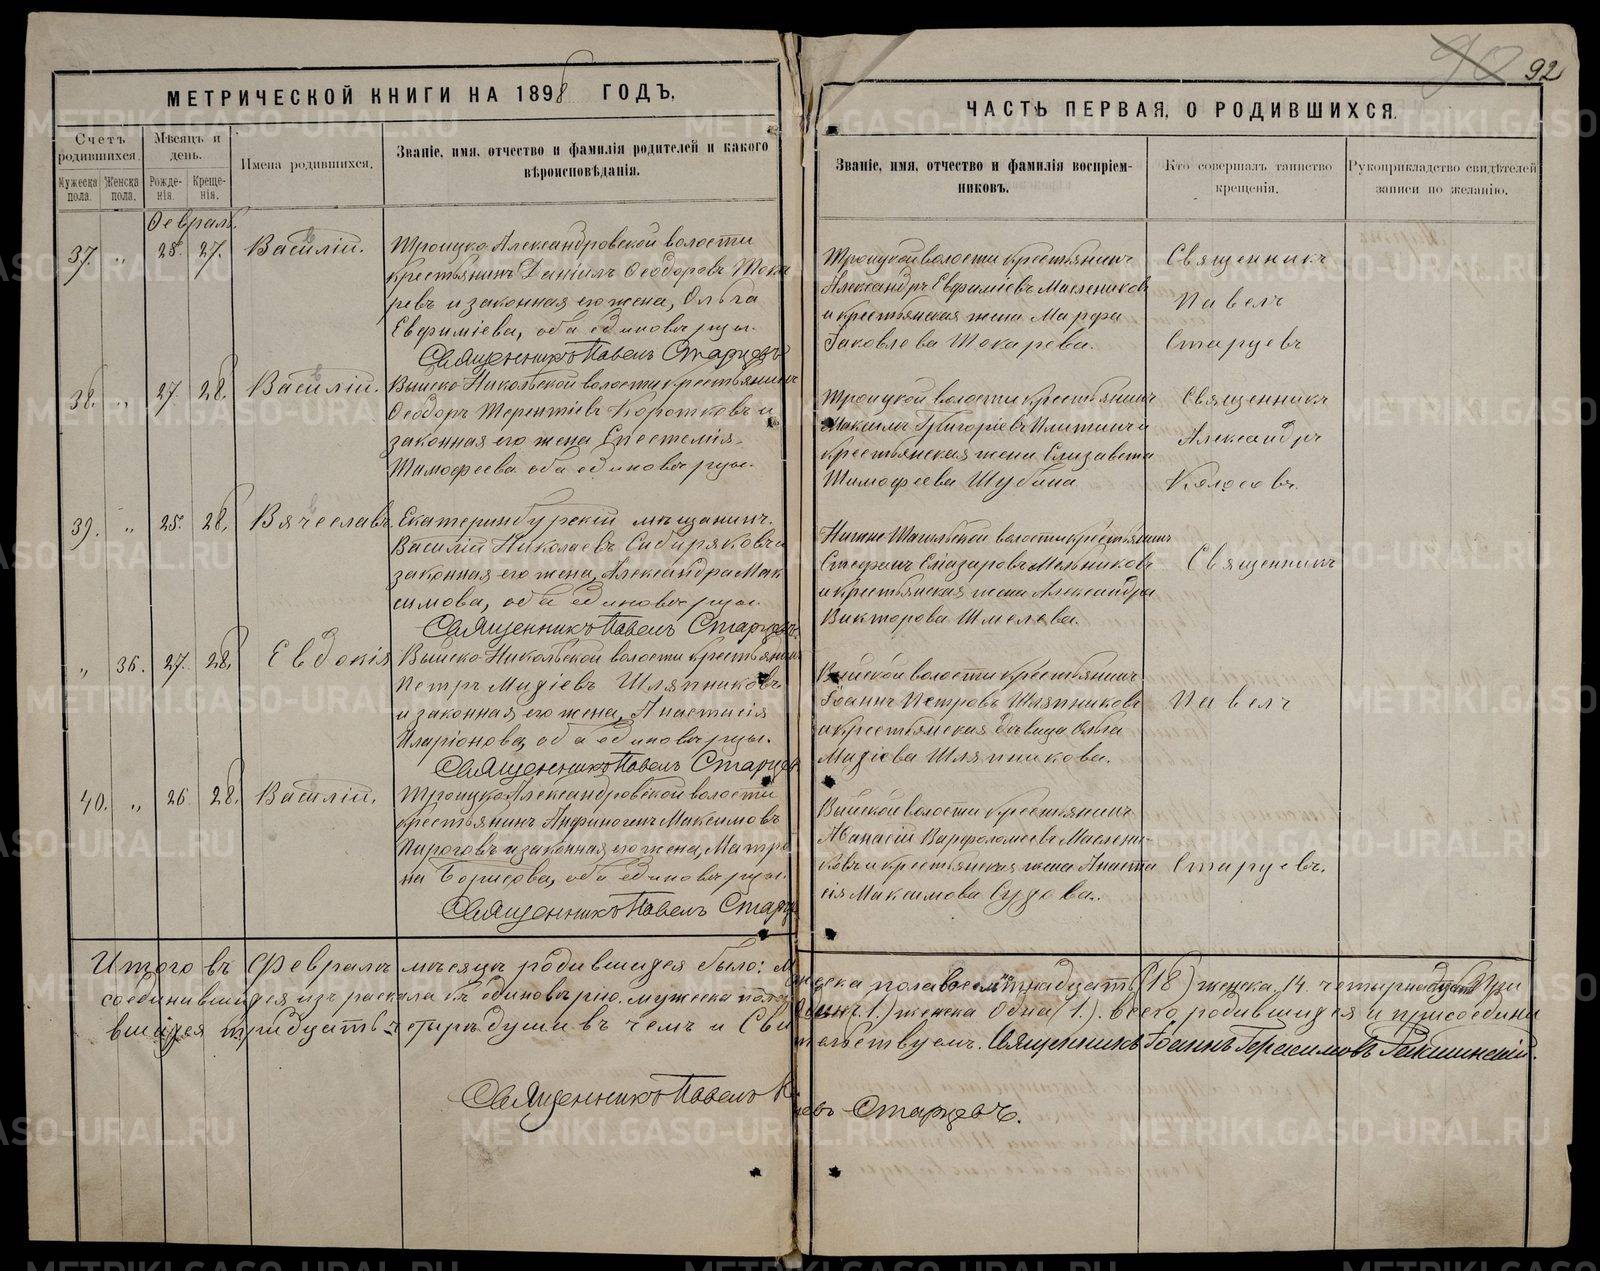 92
МЕТРИЧЕСКОЙ КНИГИ НА 1898 ГОДЪ,
Счетъ родившихся.
Мужеска пола.
Женска пола.
Мѣсяцъ и день.
Рожде-
нія.
Креще-
нія.
Имена родившихся.
Званіе, имя, отчество и фамилія родителей и какого
вѣроисповѣданія.
Февраль.
37. „ 28. 27. Василій.
Троицко-Александровской волости
крестьянинъ Даніилъ Ѳеодоровъ Тока
ревъ и законная его жена, Ольга
Евфиміева, оба единовѣрцы.
Священникъ Павелъ Старцевъ
38. „ 27. 28. Василій.
Выйско-Никольской волости крестьянинъ
Ѳеодоръ Терентіевъ Коротковъ и
законная его жена
Тимофеева оба единовѣрцы.
39. „ 25. 28. Вячеславъ.
Екатеринбурскій мѣщанинъ
Василій Николаевъ Сибиряковъ и
законная его жена, Александра Мак
симова, оба единовѣрцы.
Священникъ Павелъ Старцевъ
„ 36. 27. 28. Евдокія
Выйско-Никольской волости крестьянинъ
Петръ Мидіевъ Шляпниковъ
и законная его жена, Анастасія
Иларіонова, оба единовѣрцы.
Священникъ Павелъ Старцев
40. „ 26 28. Василій.
Троицко-Александровской волости
крестьянинъ Анфиногенъ Максимовъ
Пироговъ и законная его жена, Матро
на Борисова, оба единовѣрцы.
Священникъ Павелъ Старц
ЧАСТЬ ПЕРВАЯ, О РОДИВШИХСЯ.
Званіе, имя, отчество и фамилія воспріем-
никовъ.
Кто совершалъ таинство
крещенія.
Рукоприкладство свидѣтелей
записи по желанію.
Троицкой волости крестьянинъ
Александръ Евфиміевъ Маслениковъ
и крестьянская жена Марфа
Іаковлева Токарева.
Священникъ
Павелъ
Старцевъ
Троицкой волости крестьянинъ
Максимъ Григоріевъ и
крестьянская жена Елизавета
Тимофеева Шубина
Священникъ
Александръ
Колосовъ.
Нижне Тагильской волости крестьянинъ
Стефанъ Елазаровъ Мельниковъ
и крестьянская жена Александра
Викторова Шмелева.
Священникъ
Выйской волости крестьянинъ
Іоаннъ Петровъ Шляпниковъ
и крестьянская дѣвица Ольга
Мидіева Шляпникова.
Павелъ
Выйской волости крестьянинъ
Аѳанасій Варфоломеевъ Маслени-
ковъ и крестьянская жена Анаста
сія Максимова Судова.
Старцевъ.
Итого въ Февралѣ мѣсяцѣ родившихся было: Мужеска пола восемнадцать (18) женска 14. четырнадцать При
соединившихся изъ раскола къ единовѣрію. мужеска пола Одинъ (1.) женска Одна (1.). всего родившихся и присоедини
вшихся тридцать четыре души въ чемъ и Свидѣтельствуемъ. Священникъ Іоаннъ Герасимовъ
Священникъ Павелъ Старцевъ.
METRIKI.GASO-URAL.RU